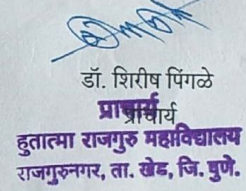 डॉ. शिरीष पिंगळे
प्राचार्य
प्राचार्य
हुतात्मा राजगुरु महाविद्यालय
राजगुरुनगर, ता. खेड, जि. पुणे.